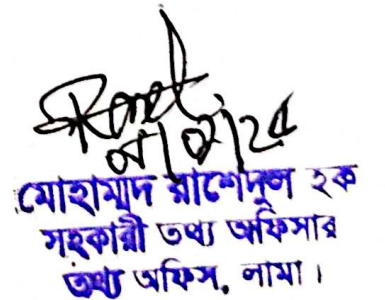 ০৭/০২/২৫
মোহাম্মদ রাশেদুল হক
সহকারী তথ্য অফিসার
তথ্য অফিস, লামা।